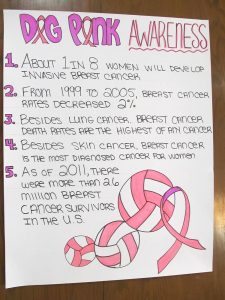 DIG PINK AWARENESS
1. ABOUT 1 IN 8 WOMEN WILL DEVELOP
INVASIVE BREAST CANCER
2. FROM 1999 TO 2005, BREAST CANCER
RATES DECREASED 2%
3. BESIDES LUNG CANCER, BREAST CANCER
DEATH RATES ARE THE HIGHEST OF ANY CANCER
4. BESIDES SKIN CANCER, BREAST CANCER
IS THE MOST DIAGNOSED CANCER FOR WOMEN
5. AS OF 2011, THERE
WERE MORE THAN 2.6
MILLION BREAST
CANCER SURVIVORS
IN THE U.S.